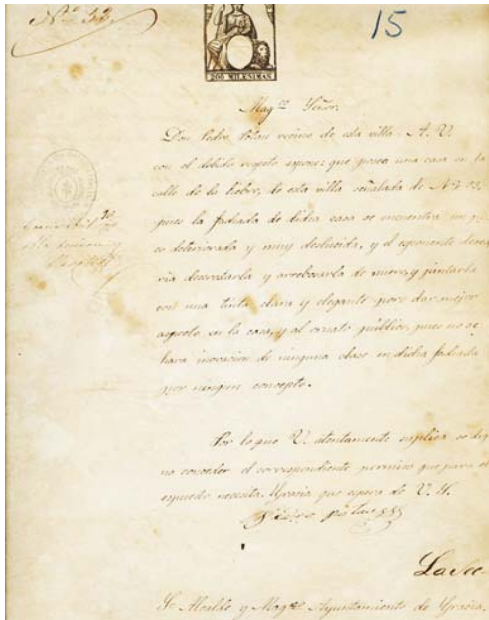 Nº 52
15
200 MILESIMAS
Magco Señor.
Don Pedro Potau vecino de esta villa A. V.
con el debido respeto espone: que posea una casa en la
calle de la de esta villa señalada de Nº
pues la fachada de dicha casa se encuentra un po
co deteriorada y muy deslucida, y el esponente desea
ria descostarla y arrebozarla de nuevo, y pintarla
con una tinta clara y elegante para dar mejor
aspecto en la casa, y al ornato público pues no se
hara inovacion de ninguna clase en dicha fachada
por ningun concepto.
Por lo que V. atentamente suplica se dig
ne conceder el correspondiente permiso que para el
necesita. Gracia que espera de V. S.
La Soc
Sr Alcalde y Magco Ayuntamiento de Gracia.